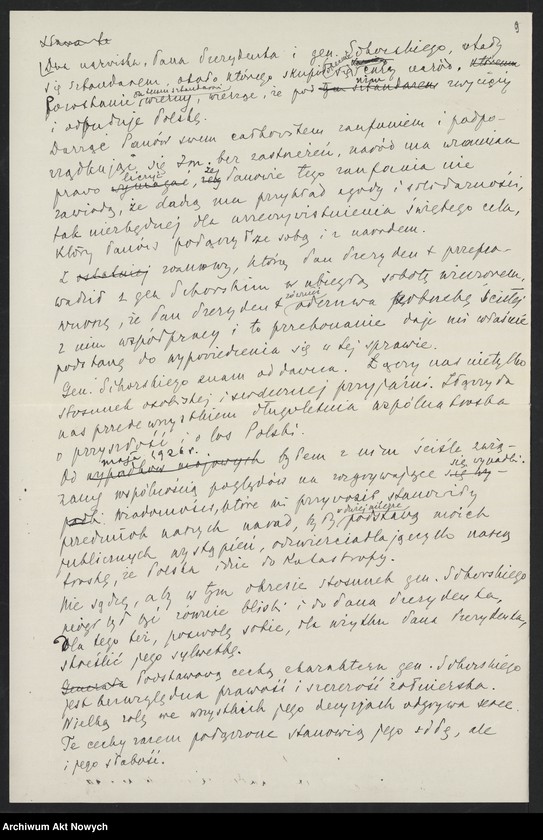 9
Dwa nazwiska, Pana Prezydenta i gen. Sikorskiego, stały
się sztandarem, około którego skupił się cały naród.
Pozostanie temu sztandarowi wierny, wierząc, że pod nim zwycięży
i odbuduje Polskę.
Darząc Panów swem całkowitem zaufaniem i podpo-
rządkując się Im, bez zastrzeżeń, naród ma wzamian
prawo liczyć, że Panowie tego zaufania nie
zawiodą, że dadzą mu przykład zgody i solidarności,
tak niezbędnej dla urzeczywistnienia świętego celu,
który Panów połączył ze sobą i z narodem.
Z ostatniej rozmowy, którą Pan Prezydent przepro-
wadził z gen. Sikorskim w ubiegłą sobotę wieczorem,
wnoszę, że Pan Prezydent również odczuwa potrzebę ścisłej
z nim współpracy i to przekonanie daje mi właśnie
podstawę do wypowiedzenia się w tej sprawie.
Gen. Sikorskiego znam oddawna. Łączy nas nietylko
stosunek osobistej i serdecznej przyjaźni. Łączyła
nas przede wszystkiem długoletnia wspólna troska
o przyszłość i o los Polski.
Od maja 1926 r. wypadków majowych byłem z nim ściśle zwią-
zany wspólnością poglądów na rozgrywające się wypadki.
Wiadomości, które mi przywoził, stanowiły
przedmiot naszych narad, były podstawą moich
publicznych wystąpień, odzwierciadlających naszą
troskę, że Polska idzie do katastrofy.
Nie sądzę, aby w tym okresie stosunek gen. Sikorskiego
mógł być równie bliski i do Pana Prezydenta,
Dla tego też, pozwolę sobie, dla użytku Pana Prezydenta,
skreślić jego sylwetkę.
Podstawową cechą charakteru gen. Sikorskiego
jest bezwzględna prawość i szczerość żołnierska.
Wielką rolę we wszystkich jego decyzjach odgrywa serce.
Te cechy razem połączone stanowią jego siłę, ale
i jego słabość.
Archiwum Akt Nowych